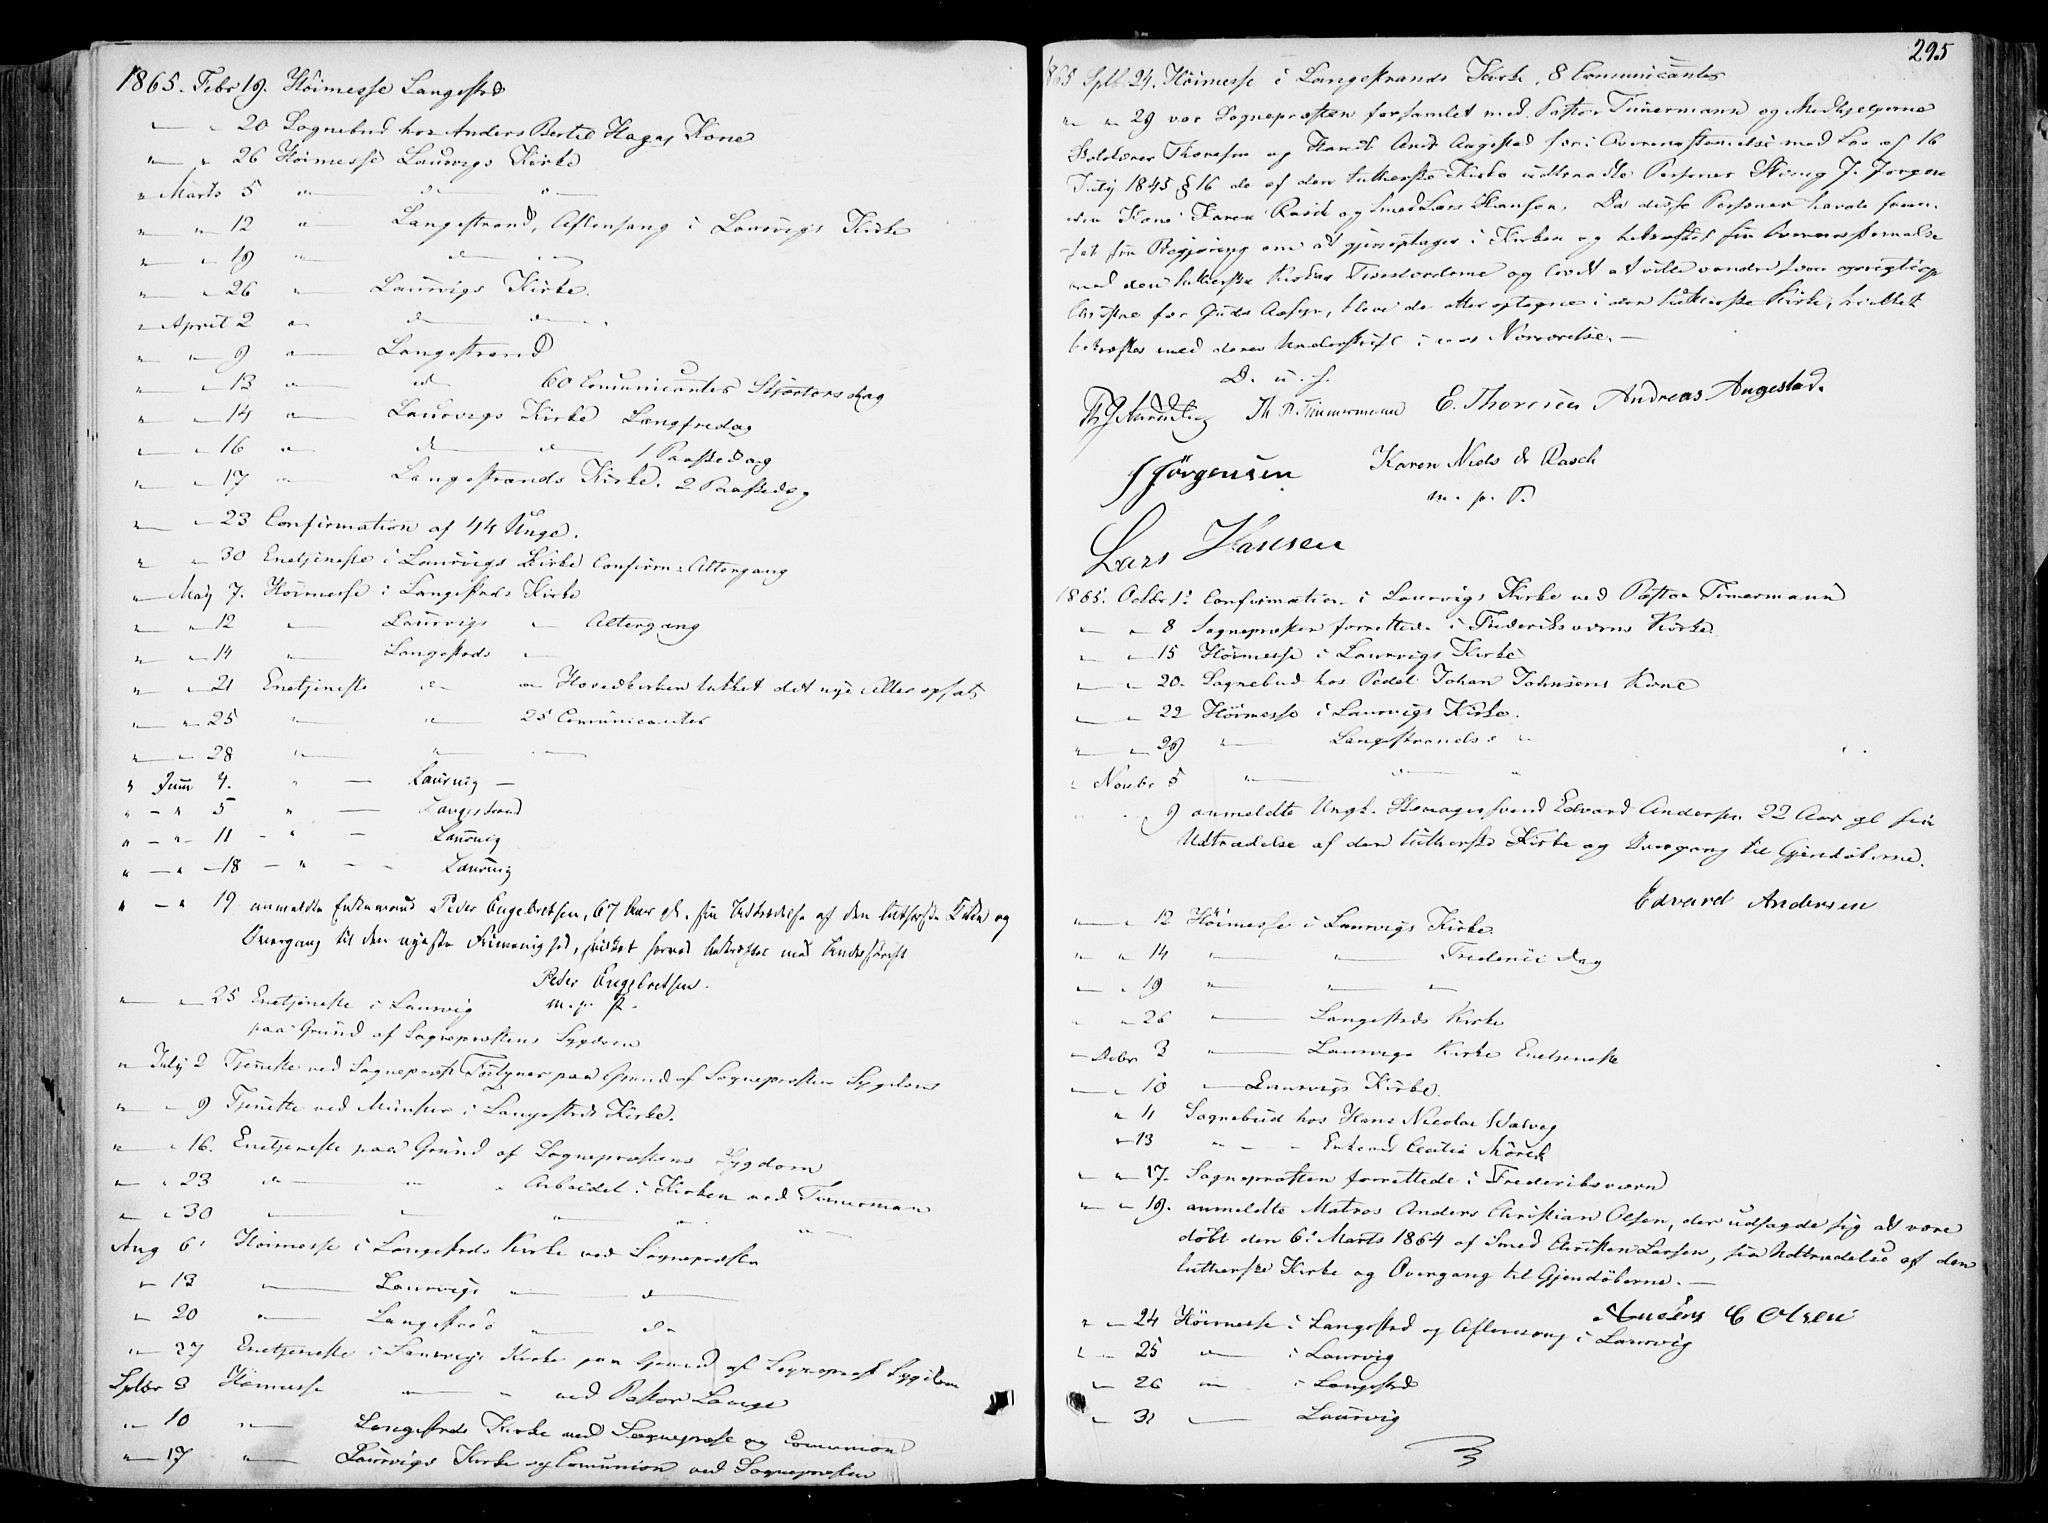 1865. Febr 19. Höimesse Langestrd
" " 20 Sognebud hos Anders Bertel Hagas Kone
" " 26 Höimesse Laurvigs Kirke
" Marts 5 " do "
" " 12 " Langestrand, Aftensang i Laurvigs Kirke
" " 19 " do
" " 26 " Laurvigs Kirke.
" April 2 " do do
" " 9 " Langestrand
" " 13 " do 60 Comunicanter Skjærtorsdag
" " 14 " Laurvigs Kirke Langfredag
" " 16 " do do 1 Paaskedag
" " 17 " Langestrands Kirke. 2 Paaskedag
" " 23 Confirmation af 44 Unge.
" " 30 Enetjeneste i Laurvigs Kirke Confirm: Altergang
" Maij 7. Höimesse i Langestrds Kirke
" " 12 " Laurvigs " Altergang
" " 14 " Langestrds "
" " 21 Enetjeneste do " Hovedkirken lukket det nye Alter opsat
" " 25 " " 25 Comunicanter
" " 28 " "
" Juni 4. " — Laurvig —
" — " 5 " — Langestrand
" — " 11 — " — Laurvig
" — " 18 — " — Laurvig
" — " 19 anmeldte Enkemand Peder Engebretsen, 67 Aar gl. sin Udtrædelse af den lutherske Kirke og
Overgang til den apostol. Frimenighed, hvilket herved bekræftes med Underskrift
Peder Engebretsen.
m. p. P.
" " 25 Enetjeneste i Laurvig
paa Grund af Sognepræstens Sygdom
" Julij 2 Tjeneste ved Sogneprest paa Grund af Sognepræstens Sygdom
" " 9 Tjeneste ved Münster i Langestrds Kirke.
" " 16. Enetjeneste paa Grund af Sognepræstens Sygdom
" " 23 do " " Arbeidet i Kirken ved Timerman
" " 30 " " " " "
Aug 6. Höimesse i Langestrds Kirke ved Sognepræsten
" 13 " Laurvigs " do
" 20 " Langestrds " do
" 27 Enetjeneste i Laurvigs Kirke paa Grund af Sognepræst Sygdom
Septbr 3 Höimesse " " ved Pastor Lange
" 10 " Langestrds Kirke ved Sognepræst og Comunion
" 17 " Laurvigs Kirke og Comunion ved Sognepræsten
295
1865 Sptb 24. Höimesse i Langestrands Kirke, 8 Comunicanter
" " 29 var Sognepræsten forsamlet med Pastor Timermann og Medhjelperne
Thoresen og Handl. Andr Augestad for i Overensstemmelse med Lov af 16
Julij 1845 § 16 de af den lutherske Kirke udtraadte Personer J. Jörgen
sen Kone Karen Rasch og Smed Lars Hansen. Da disse Personer havde frem
sat sin Begjering om at gjenoptages i Kirken og bekræftet sin Overensstemmelse
med den lutherske Kirkes Troeslærdomme og lovet at ville vandre som oprigtige
Christne for Guds Aasyn, bleve de atter optagne i den lutherske Kirke, hvilket
bekræftes med deres Underskrift i vor Nærværelse. —
D. u. s.
Th P. Timmermann E. Thoresen Andreas Augestad.
J Jörgensen Karen Niels dr Rasch
m. p. P.
Lars Hansen
1865. Octbr 1. Confirmation i Laurvigs Kirke ved Pastor Timermann
" " 8 Sognepræsten forrettede i Frederiksværns Kirke.
" " 15 Höimesse i Laurvigs Kirke
" " 20. Sognebud hos Pedel Johan Johnsens Kone
" " 22 Höimesse i Laurvigs Kirke.
" " 29 " Langestrands "
" Novbr 5 " do "
" " 9 anmeldte Ungk. Skomagersvend Edvard Andersen 22 Aar gl sin
Udtrædelse af den lutherske Kirke og Overgang til Gjendöberne.
Edvard Andersen
" " 12 Höimesse i Laurvigs Kirke.
" " 14 " " Frederici dag
" " 19 " " "
" " 26 " Langestrds Kirke
" Debr 3 " Laurvigs Kirke Enetjeneste
" " 10 " Laurvigs Kirke.
" 11 Sognebud hos Hans Nicolai Walvog
" 13 " " " Enkemd Cecilia Mörch
" " 17. Sognepræsten forrettede i Frederiksværn
" " 19. anmeldte Matros Anders Christian Olsen, der udsagde sig at være
döbt den 6. Marts 1864 af Smed Christen Larsen, sin Udtrædelse af den
lutherske Kirke og Overgang til Gjendöberne. —
Anders C Olsen
" " 24 Höimesse i Langestrd og Aftensang i Laurvig
" " 25 " i Laurvig
" 26 " i Langestrd
" 31 " Laurvig